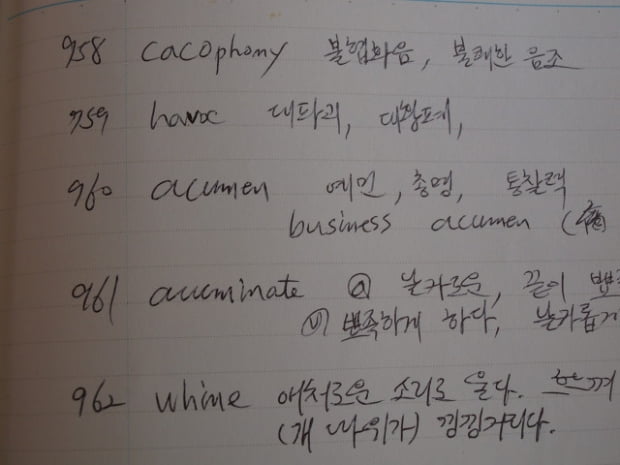 958 cacophony 불협화음, 불쾌한 음조
959 havoc 대파괴, 대황폐,
960 acumen 예민, 총명, 통찰력
business acumen (
961 acuminate ⓐ 날카로운, 끝이
ⓥ 뾰족하게 하다, 날카롭게
962 whine 애처로운 소리로 울다.
(개 따위가) 낑낑거리다.